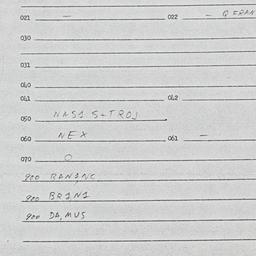 021 — 022 — Q FRAN
030
031
040
041 042
050 NASA S+TROJ
060 NEX 061 —
070 O
900 BANANC
900 BRANA
900 DA, MUS